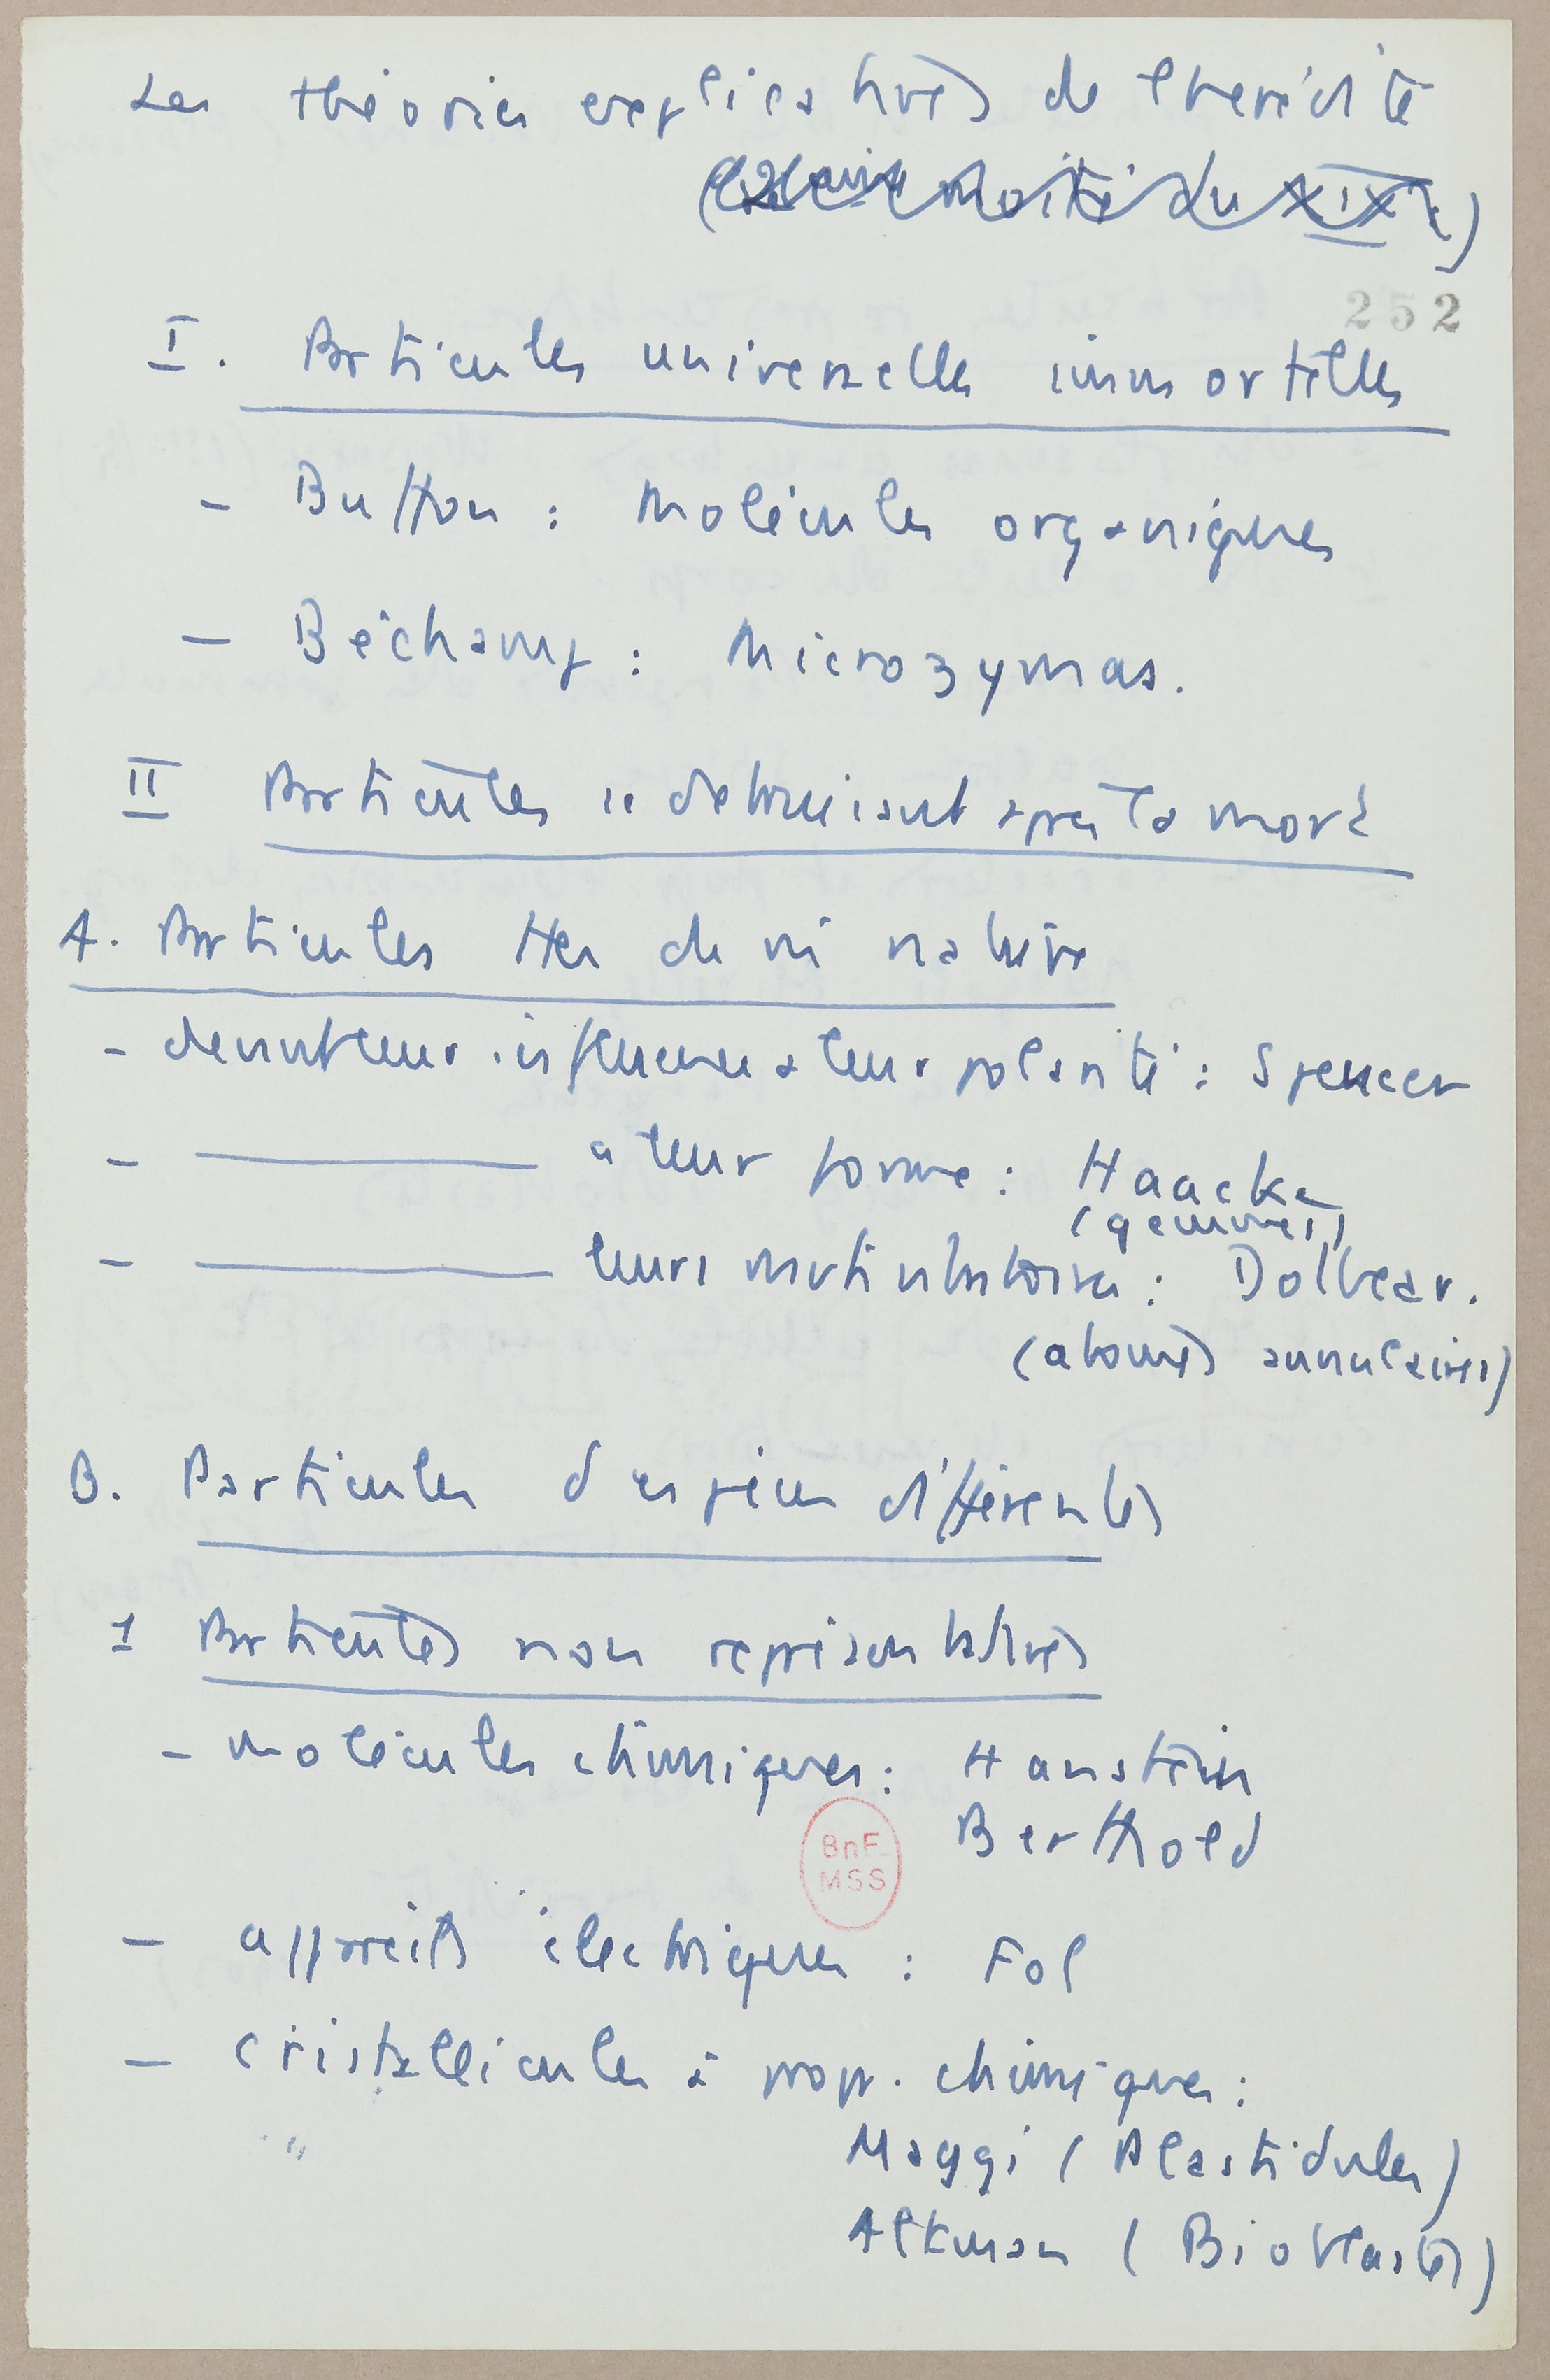 Les théories explicatives de l'hérédité
(2ème moitié du XIXe)
252
I. Particules universelles immortelles
- Buffon : Molécules organiques
- Béchamp : Microzymas.
II Particules se détruisant après la mort
A. Particules de nature
- devant leur influence à leur polarité : Spencer
- ——— à leur forme : Haacke
(gemmes)
- ——— leurs vibratoires : Dolbear.
(atomes annulaires)
B. Particules d'espèces différentes
1 Particules non représentatives
- molécules chimiques : Hanstein
Berthold
BnF
MSS
- appareils électriques : Fol
- cristallicules à propr. chimiques :
Maggi (Plastidules)
Altman (Bioblastes)